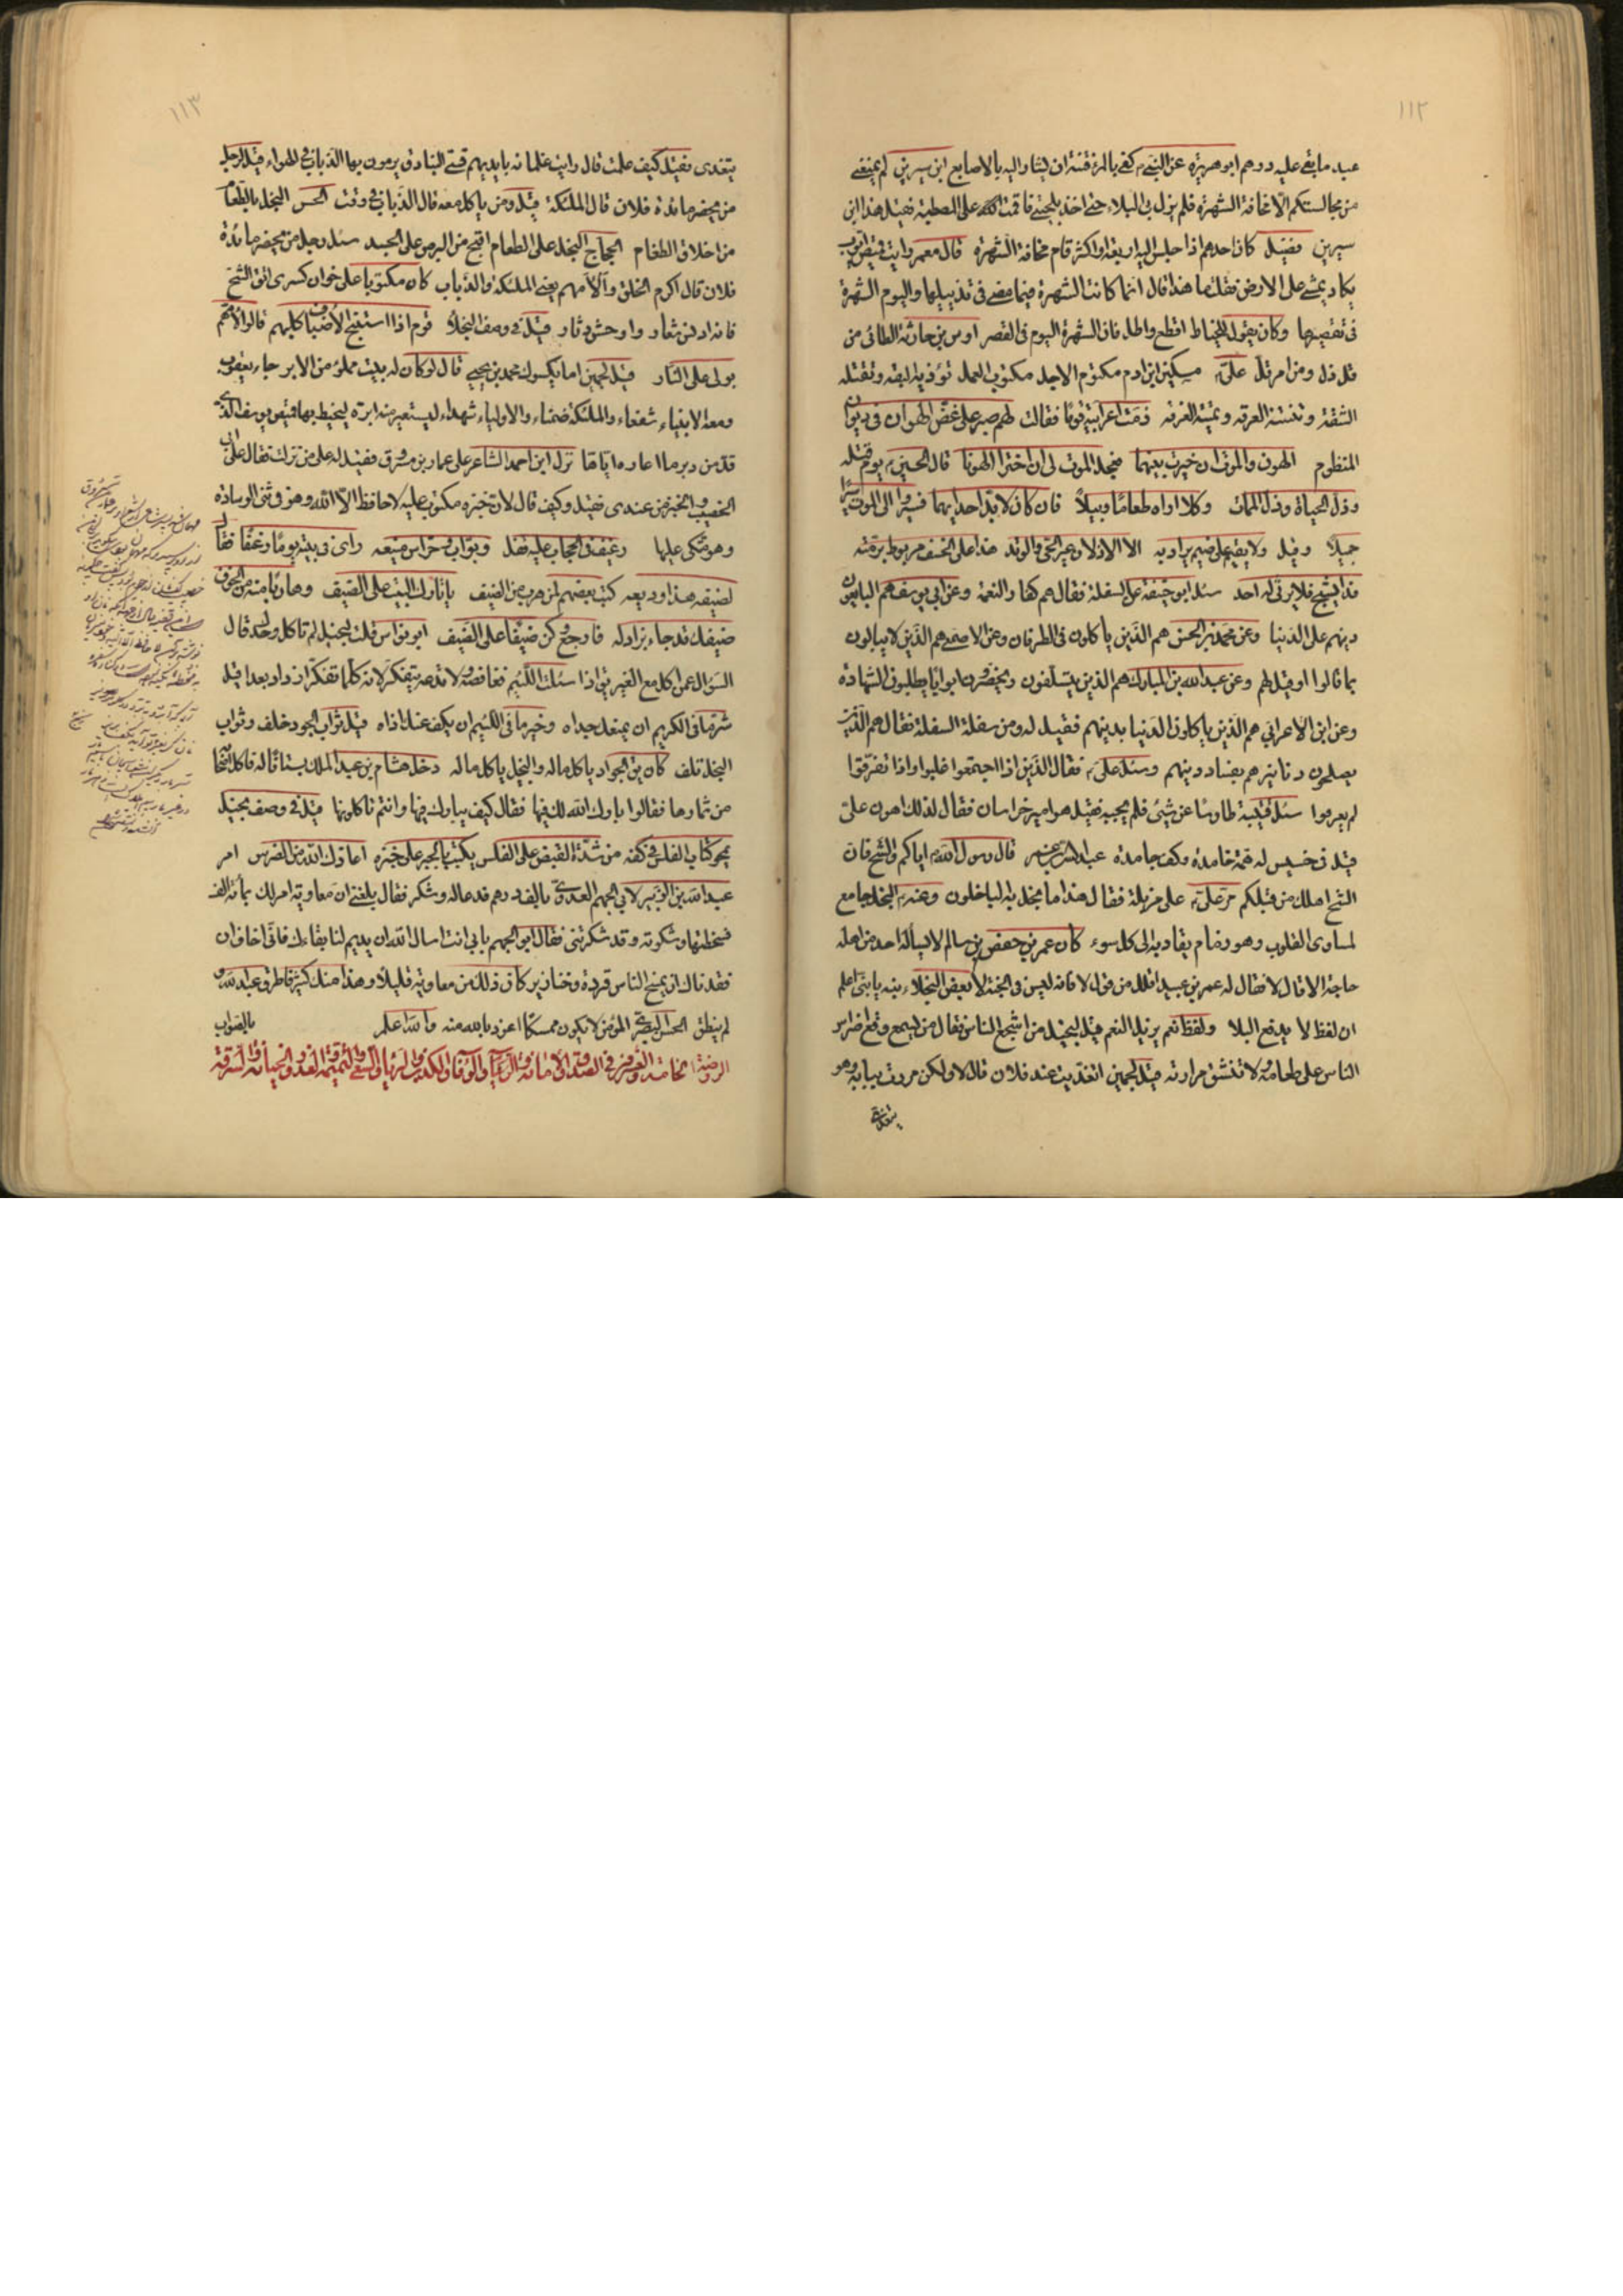 ١١٢
عبد ما بقي عليه درهم ابو هريرة عن النبي كفى بالمرء فتنة ان يشار اليه بالاصابع ابن سيرين لم يمنعني
من مجالستكم الا مخافة الشهرة فلم يزل بي البلاء حتى اخذ بلحيتي فاقمت على المصطبة فقيل هذا ابن
سيرين وقيل كان احدهم اذا جلس اليه اربعة او اكثر قام مخافة الشهرة قال معمر رايت قميص ايوب
يكاد يمشي على الارض فقلت ما هذا قال انما كانت الشهرة فيما مضى في تذييلها واليوم الشهرة
في تقصيرها وكان يقول للخياط اقطع واطل فان الشهرة اليوم في القصر اوس بن حارثة الطائي من
قل ذل ومن امر فل علي مسكين ابن ادم مكتوم الاجل مكتوب العمل تؤذيه البقة وتقتله
الشرقة وتنتنه العرقة وتميته الغرقة ذمت اعرابية قوما فقالت لهم صبر على غصص الهوان في ديوان
المنظوم الهون والموت ان خيرت بينهما فيجل الموت لي ان اختر الهونا قال الحسين يوم قتله
وذل الحياة وذل الممات وكلا اراه طعاما وبيلا فان كان لا بد احداهما فسيروا الى الموت سيرا
جميلا وقيل ولا يقيم على ضيم يراد به الا الاذلان عير الحي والوتد هذا على الخسف مربوط برمته
وذا يشج فلا يرثي له احد سئل ابو حنيفة عن السفلة فقال هم كفار النعمة وعن ابي يوسف هم البايعون
دينهم على الدنيا وعن محمد بن الحسن هم الذين ياكلون في الطرقات وعن الاصمعي هم الذين لا يبالون
بما قالوا او قيل لهم وعن عبد الله بن المبارك هم الذين يتسلفون ويحضرون ابوابا يطلبون الشهادة
وعن ابن الاعرابي هم الذين ياكلون الدنيا بدينهم فقيل له ومن سفلة السفلة فقال هم الذين
يصلحون دنيا غيرهم بفساد دينهم وسئل علي فقال الذين اذا اجتمعوا غلبوا واذا تفرقوا
لم يعرفوا سئل قتيبة طاوسا عن شيئ فلم يجبه فقيل هو امير خراسان فقال لذلك اهون علي
قيل في خسيس له همة خامدة وكف جامدة قال رسول الله اياكم والشح فان
الشح اهلك من قبلكم مر علي على مزبلة فقال هذا ما يبخل به الباخلون وعنه البخل جامع
لمساوى القلوب وهو زمام يقاد به الى كل سوء كان عمر بن حفص بن سالم لا يساله احد من اهله
حاجة الا قال لا فقال له عمر بن عبيد اقلل من قول لا فانه ليس في الجنة لا بعض البخلاء بنيه يا بني اعلم
ان لفظ لا يدفع البلا ولفظ نعم يزيل النعم قيل لبخيل من اشجع الناس فقال من يسمع وقع اضراس
الناس على طعامه ولا تنشق مرارته قيل لجمين اتغديت عند فلان قال لا ولكن مررت ببابه وهو
يتغدى
١١٣
يتغدى فقيل كيف علمت قال رايت غلمانه بايديهم قسي البنادق يرمون بها الذبان في الهواء قيل لرجل
من يحضر مائدة فلان قال الملئكة قيل ومن ياكل معه قال الذبان في وقت الحسن البخل بالطعام
من اخلاق الطغام الحجاج البخل على الطعام اقبح من البرص على الجسد سئل رجل من يحضر مائدة
فلان قال اكرم الخلق والأمهم يعني الملئكة والذباب كان مكتوبا على خوان كسرى اتق الشح
فانه ادنس شعار واوحش دثار قيل في وصف البخلاء قوم اذا استنبح الاضياف كلبهم قالوا لامهم
بولي على النار قيل لجمين اما يكسوك محمد بن يحيى قال لو كان له بيت مملو من الابر جاء يعقوب
ومعه الانبياء شفعاء والملئكة ضمناء والاولياء شهداء ليستعير منه ابرة ليخيط بها قميص يوسف الذي
قد من دبر ما اعاره اياها نزل ابن احمد الشاعر على عمار بن مسروق فقيل له على من نزلت فقال على ان
الخصيب والخبز من عندى فقيل وكيف قال لان خبزه مكتوب عليه لا حافظ الا الله وهو في ثني الوسادة
وهو متكى عليها رغيف في الحجاب عليه قفل وبواب وحراس منيعه راى في بيته يوما رغيفا فقال
لضيفه هذا وديعه كتب بعضهم لمن هرب عن الضيف يا تارك البيت على الضيف وهاربا منه من الخوف
ضيفك قد جاء بزاد له فارجع وكن ضيفا على الضيف ابو نواس قلت لبخيل لم تاكل وحدك قال
السؤال عمن اكل مع الغير بني اذا سئلت اللئيم فغافصه ولا تدعه يتفكر لانه كلما تفكر ازداد بعدا قيل
شر ما في الكريم ان يمنعك جداه وخير ما في اللئيم ان يكف عنك اذاه قيل ثواب الجود خلف وثواب
البخل تلف كان بق الجواد ياكل ماله والبخل ياكل ماله دخل هشام بن عبد الملك بستانا له فاكل اصحابه
من ثمارها فقالوا بارك الله لك فيها فقال كيف يبارك فيها وانتم تاكلونها قيل في وصف بخيل
يمحو كتاب الفلس في كفه من شدة القبض على الفلس يكتب بالحبر على خبزه اعاذك الله من الضرس امر
عبد الله بن الزبير لابي الجهم العدوي بالف درهم فدعا له وشكر فقال بلغني ان معاوية امر لك بمائة الف
فسخطتها وشكوته وقد شكرتني فقال ابو الجهم بابي انت اسال الله ان يديم لنا بقاءك فاني اخاف ان
فقدناك ان يمسخ الناس قردة وخنازير كان ذلك من معاوية قليلا وهذا منك كثير فاطرق عبد الله و
لم ينطق الحسن البصري المؤمن لا يكون ممسكا اعوذ بالله منه والله اعلم بالصواب
الروضة الخامسة والعشرون في الصدق والامانة والرعاية والوفا والكذب والرياء والسعي والنميمة والغدر والخيانة والسرقة